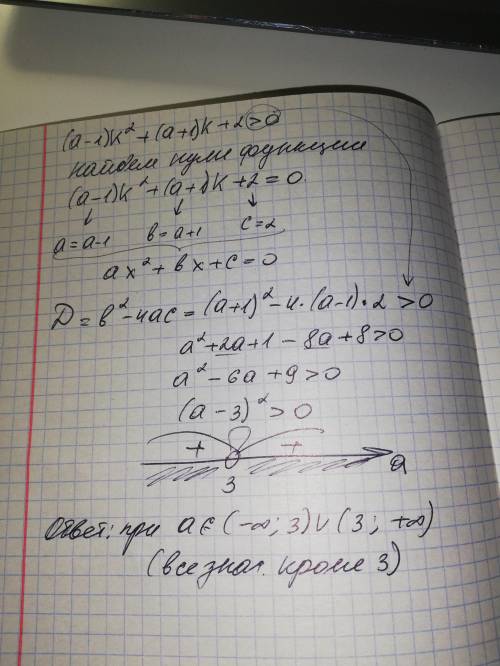 (a-1)k² + (a+1)k + 2 > 0
найдем нули функции
(a-1)k² + (a+1)k + 2 = 0.
a = a-1 в = a+1 c = 2
ax² + вx + c = 0
D = в² - 4ac = (a+1)² - 4·(a-1)·2 > 0
a² + 2a + 1 - 8a + 8 > 0
a² - 6a + 9 > 0
(a - 3)² > 0
+ +
3 a
Ответ: при a ∈ (-∞; 3) ∪ (3; +∞)
(все знач. кроме 3)